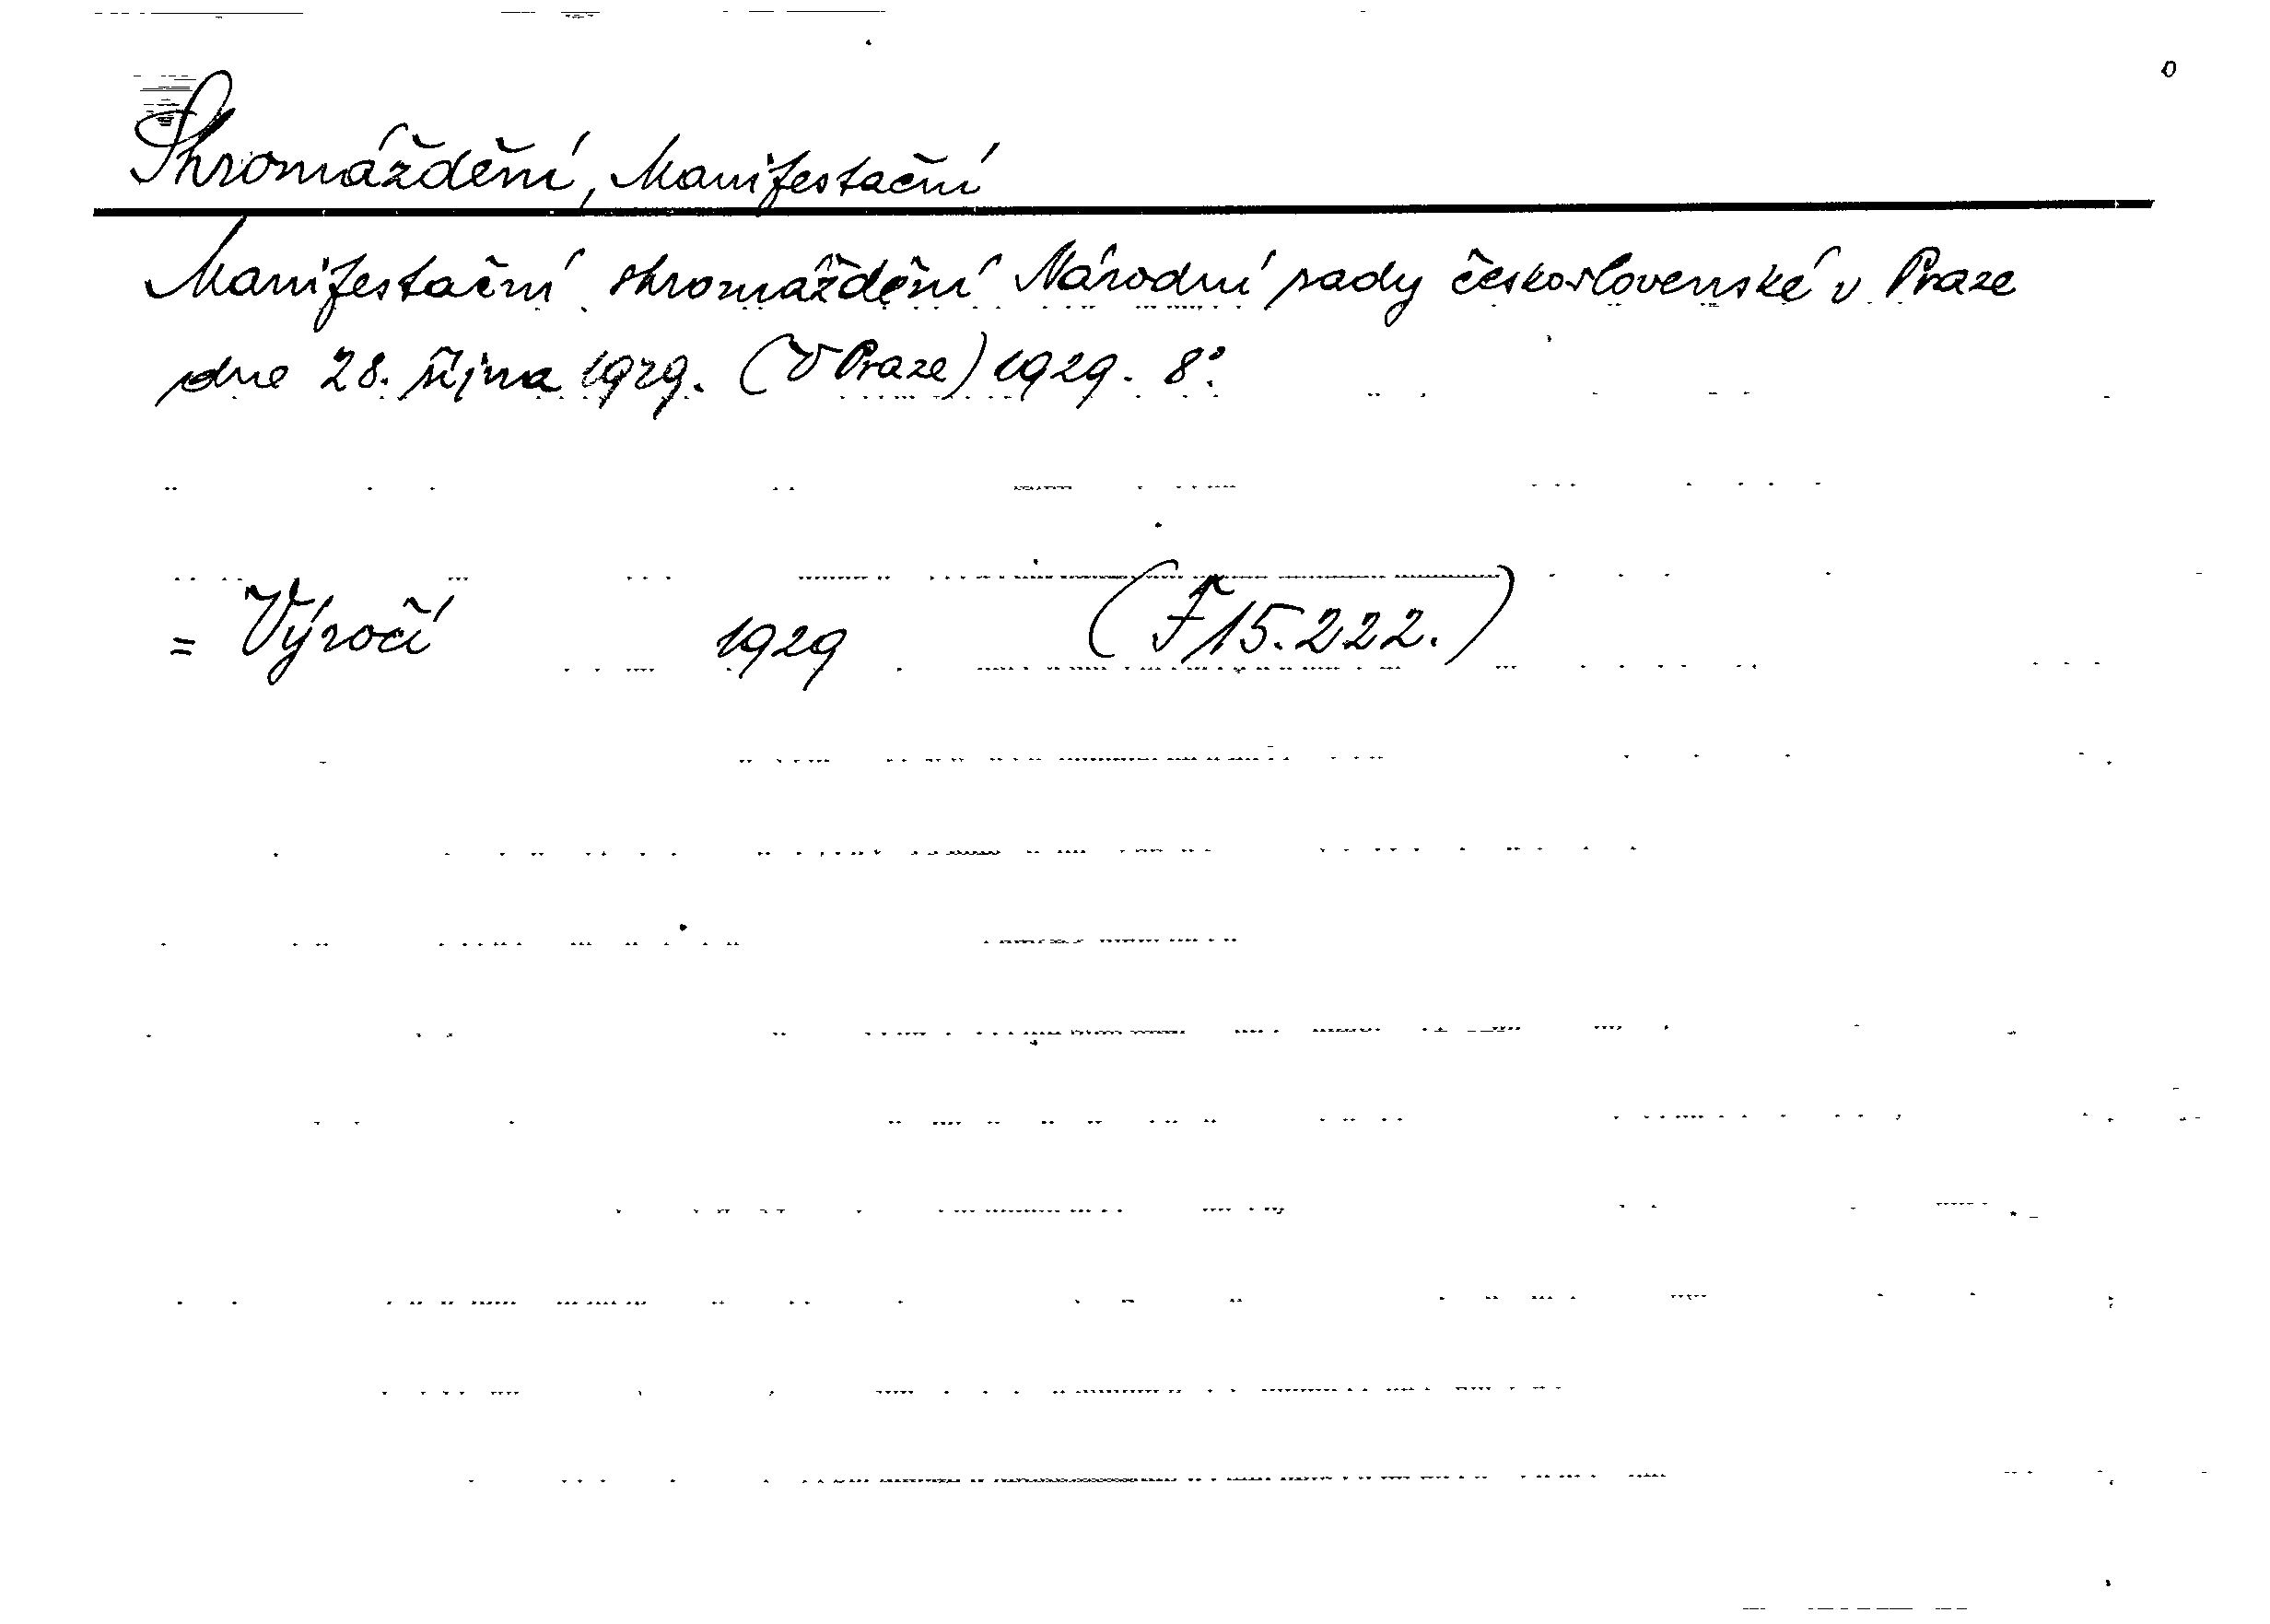 Shromáždění, Manifestační
Manifestační shromáždění Národní rady československé v Praze
dne 28. října 1929. (V Praze) 1929. 8°.
= Výročí 1929 (F 15.222.)